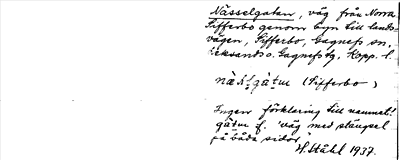 Nässelgatan, väg från Norra
Sifferbo genom byn till lands-
vägen, Sifferbo, Gagnefs sn,
Leksands o. Gagnefs tg, Kopp. l.
(Sifferbo)
Ingen förklaring till namnet!
f. "väg med stängsel
på båda sidor"
H. Ståhl 1937.